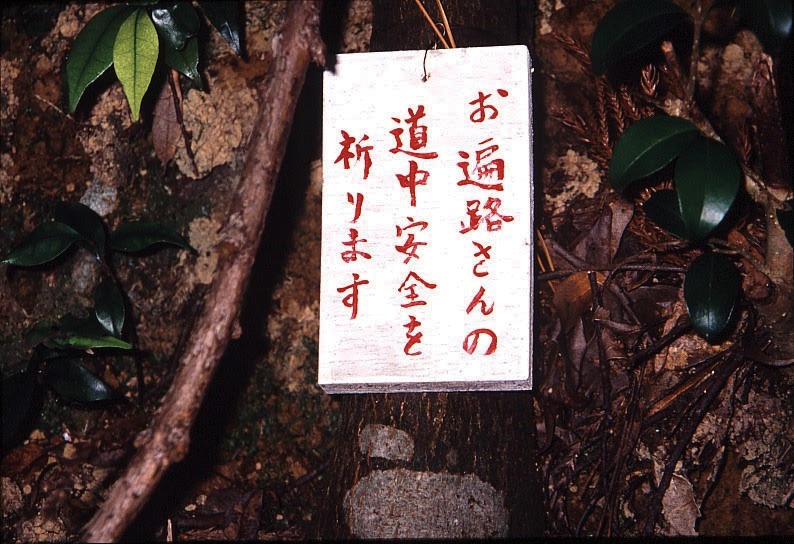 お遍路さんの
道中安全を
祈ります